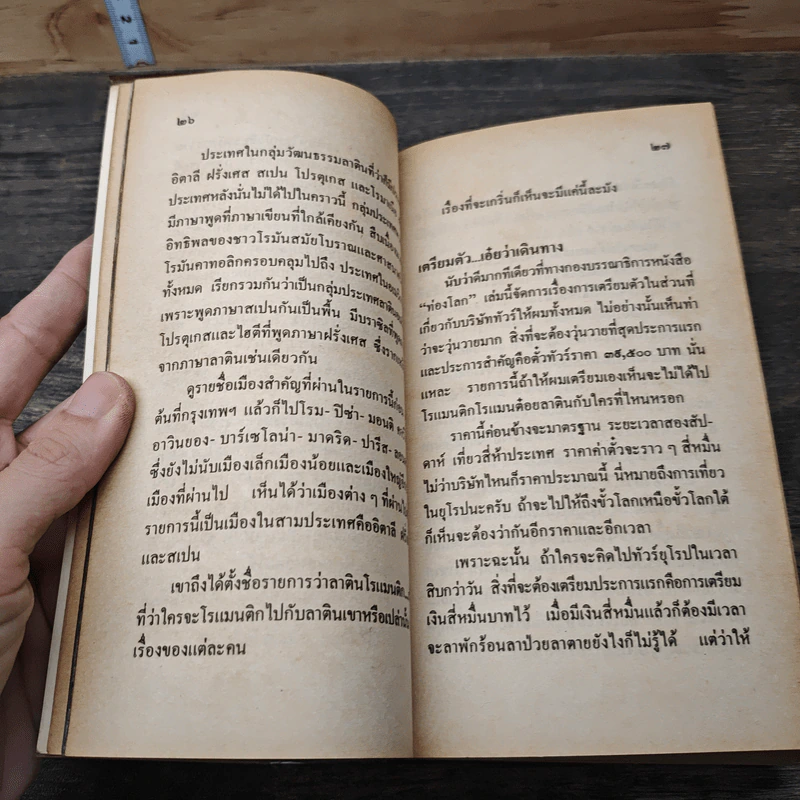 2 1
๒๖
ประเทศในกลุ่มวัฒนธรรมลาตินที่ว่าคือ
อิตาลี ฝรั่งเศส สเปน โปรตุเกส และโรมาเนีย
ประเทศหลังนั่นไม่ได้ไปในคราวนี้ กลุ่มประเทศ
มีภาษาพูดที่ภาษาเขียนที่ใกล้เคียงกัน สืบเนื่อง
อิทธิพลของชาวโรมันสมัยโบราณและศาสนา
โรมันคาทอลิกครอบคลุมไปถึง ประเทศใน
ทั้งหมด เรียกรวมกันว่าเป็นกลุ่มประเทศลาติน
เพราะพูดภาษาสเปนกันเป็นพื้น มีบราซิลที่พูด
โปรตุเกสและไฮติที่พูดภาษาฝรั่งเศส ซึ่ง
จากภาษาลาตินเช่นเดียวกัน
ดูรายชื่อเมืองสำคัญที่ผ่านในรายการนี้ก่อน
ต้นที่กรุงเทพฯ แล้วก็ไปโรม- ปิซ่า- มอนติ
อาวินยอง- บาร์เซโลน่า- มาดริด- ปารีส-
ซึ่งยังไม่นับเมืองเล็กเมืองน้อยและเมืองใหญ่
เมืองที่ผ่านไป เห็นได้ว่าเมืองต่าง ๆ ที่ผ่าน
รายการนี้เป็นเมืองในสามประเทศคืออิตาลี
และสเปน
เขาถึงได้ตั้งชื่อรายการว่าลาตินโรแมนติก...
ที่ว่าใครจะโรแมนติกไปกับลาตินเขาหรือเปล่านั้น
เรื่องของแต่ละคน
๒๗
เรื่องที่จะเกริ่นก็เห็นจะมีแค่นี้ละมัง
เตรียมตัว...เอ๋ยว่าเดินทาง
นับว่าดีมากทีเดียวที่ทางกองบรรณาธิการหนังสือ
“ท่องโลก” เล่มนี้จัดการเรื่องการเตรียมตัวในส่วนที่
เกี่ยวกับบริษัททัวร์ให้ผมทั้งหมด ไม่อย่างนั้นเห็นทำ
ว่าจะวุ่นวายมาก สิ่งที่จะต้องวุ่นวายที่สุดประการแรก
และประการสำคัญคือตั๋วทัวร์ราคา ๓๙,๕๐๐ บาท นั่น
แหละ รายการนี้ถ้าให้ผมเตรียมเองเห็นจะไม่ได้ไป
โรแมนติกโรแมนต๋อยลาตินกับใครที่ไหนหรอก
ราคานี้ค่อนข้างจะมาตรฐาน ระยะเวลาสองสัป-
ดาห์ เที่ยวสี่ห้าประเทศ ราคาค่าตั๋วจะราว ๆ สี่หมื่น
ไม่ว่าบริษัทไหนก็ราคาประมาณนี้ นี่หมายถึงการเที่ยว
ในยุโรปนะครับ ถ้าจะไปให้ถึงขั้วโลกเหนือขั้วโลกใต้
ก็เห็นจะต้องว่ากันอีกราคาและอีกเวลา
เพราะฉะนั้น ถ้าใครจะคิดไปทัวร์ยุโรปในเวลา
สิบกว่าวัน สิ่งที่จะต้องเตรียมประการแรกคือการเตรียม
เงินสี่หมื่นบาทไว้ เมื่อมีเงินสี่หมื่นแล้วก็ต้องมีเวลา
จะลาพักร้อนลาป่วยลาตายยังไงก็ไม่รู้ได้ แต่ว่าให้